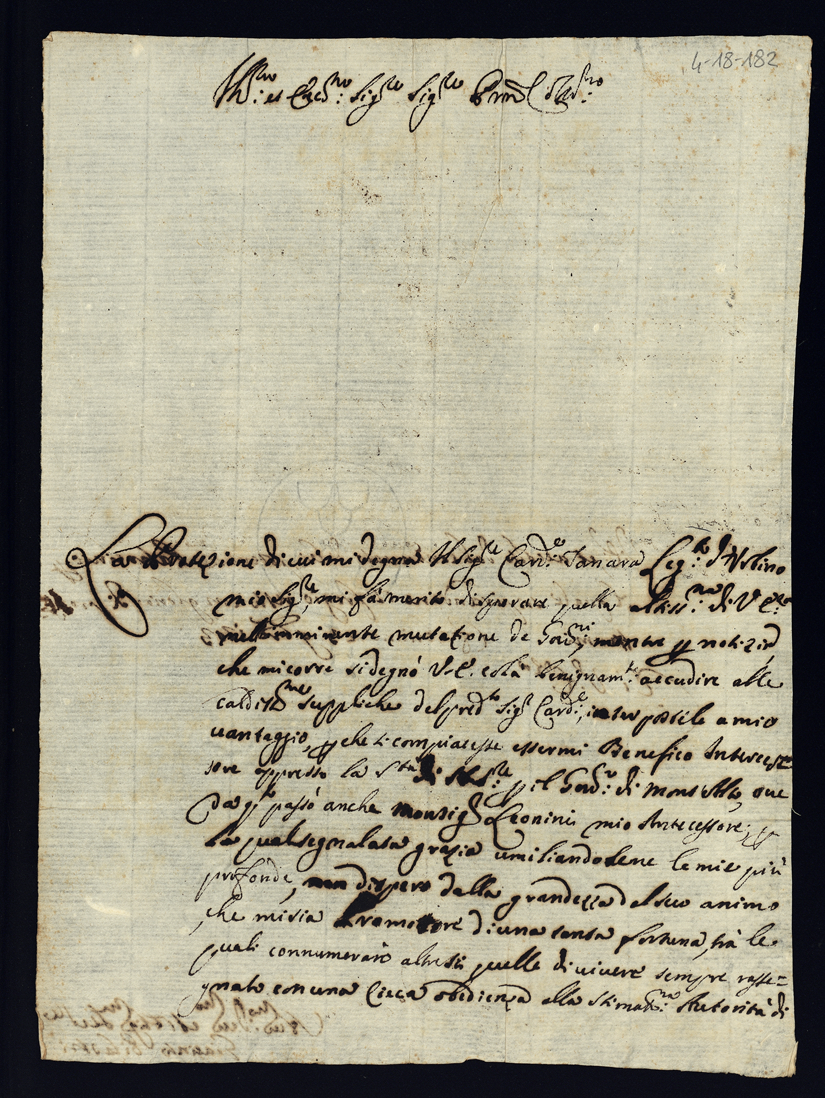 4-18-182
Ill:mo et Ecc:mo Sig:re Sig:re P̃rōn Col:mo
La Protezione di cui mi degna Il Sig:re Card:e Tanara Leg:to d'Urbino
mio Sig:re, mi fà merito di sperare quella altiss:ma di V. E.
nell'imminente mutazione de Gov:ni, mentre p notizia
che mi corre si degnò V. E. colà benignam:te accudire alle
caldiss:me suppliche del pred:to Sig:r Card:e, interposte à mio
vantaggio, p che si compiacesse essermi Benefico Interces=
sore appresso la S:tà di N. S:re p il Gov:o di Mont'Alto, ove
Da q:to passò anche Monsig:r Leonini mio Antecessore:
La qual segnalata grazia umiliandolene le mie più
profonde, non dispero dalla grandezza del suo animo
che mi sia Promotore di una tanta fortuna, frà le
quali connumerarò altresì quelle di vivere sempre rasse=
gnato con una Cieca obedienza alla stimat:ma Autorità di